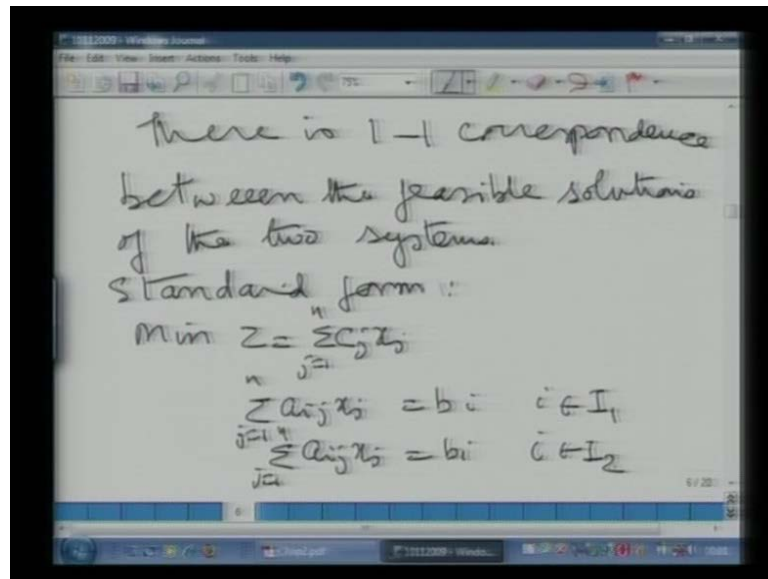 10112009 - Windows Journal
File Edit View Insert Actions Tools Help
75%
There is 1-1 correspondence
between the feasible solutions
of the two systems.
Standard form :
Min Z = \sum_{j=1}^{n} C_j x_j
\sum_{j=1}^{n} a_{ij} x_j = b_i i ∈ I_1
\sum_{j=1}^{n} a_{ij} x_j = b_i i ∈ I_2
6
10112009 - Windo...